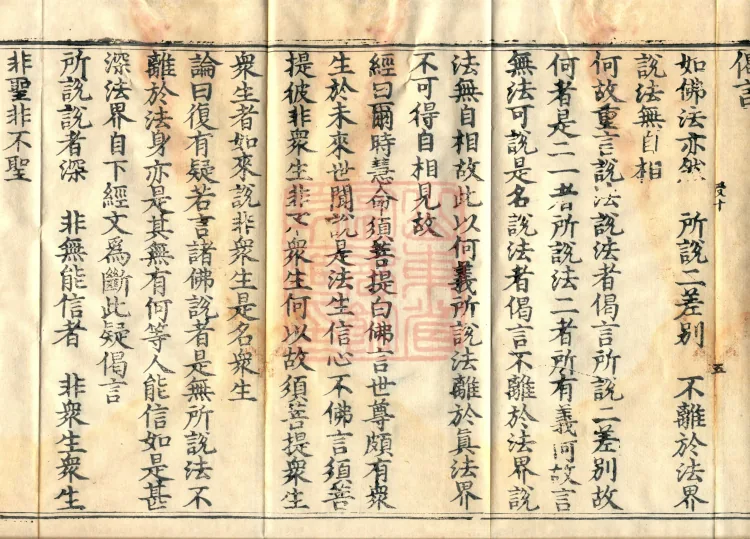 偈言
十 五
如佛法亦然 所說二差別 不離於法界
說法無自相
何故重言說法說法者偈言所說二差別故
何者是二一者所說法二者所有義何故言
無法可說是名說法者偈言不離於法界說
法無自相故此以何義所說法離於真法界
不可得自相見故
經曰爾時慧命須菩提白佛言世尊頗有衆
生於未來世聞說是法生信心不佛言須菩
提彼非衆生非不衆生何以故須菩提衆生
衆生者如來說非衆生是名衆生
論曰復有疑若言諸佛說者是無所說法不
離於法身亦是其無有何等人能信如是甚
深法界自下經文爲斷此疑偈言
所說說者深 非無能信者 非衆生衆生
非聖非不聖